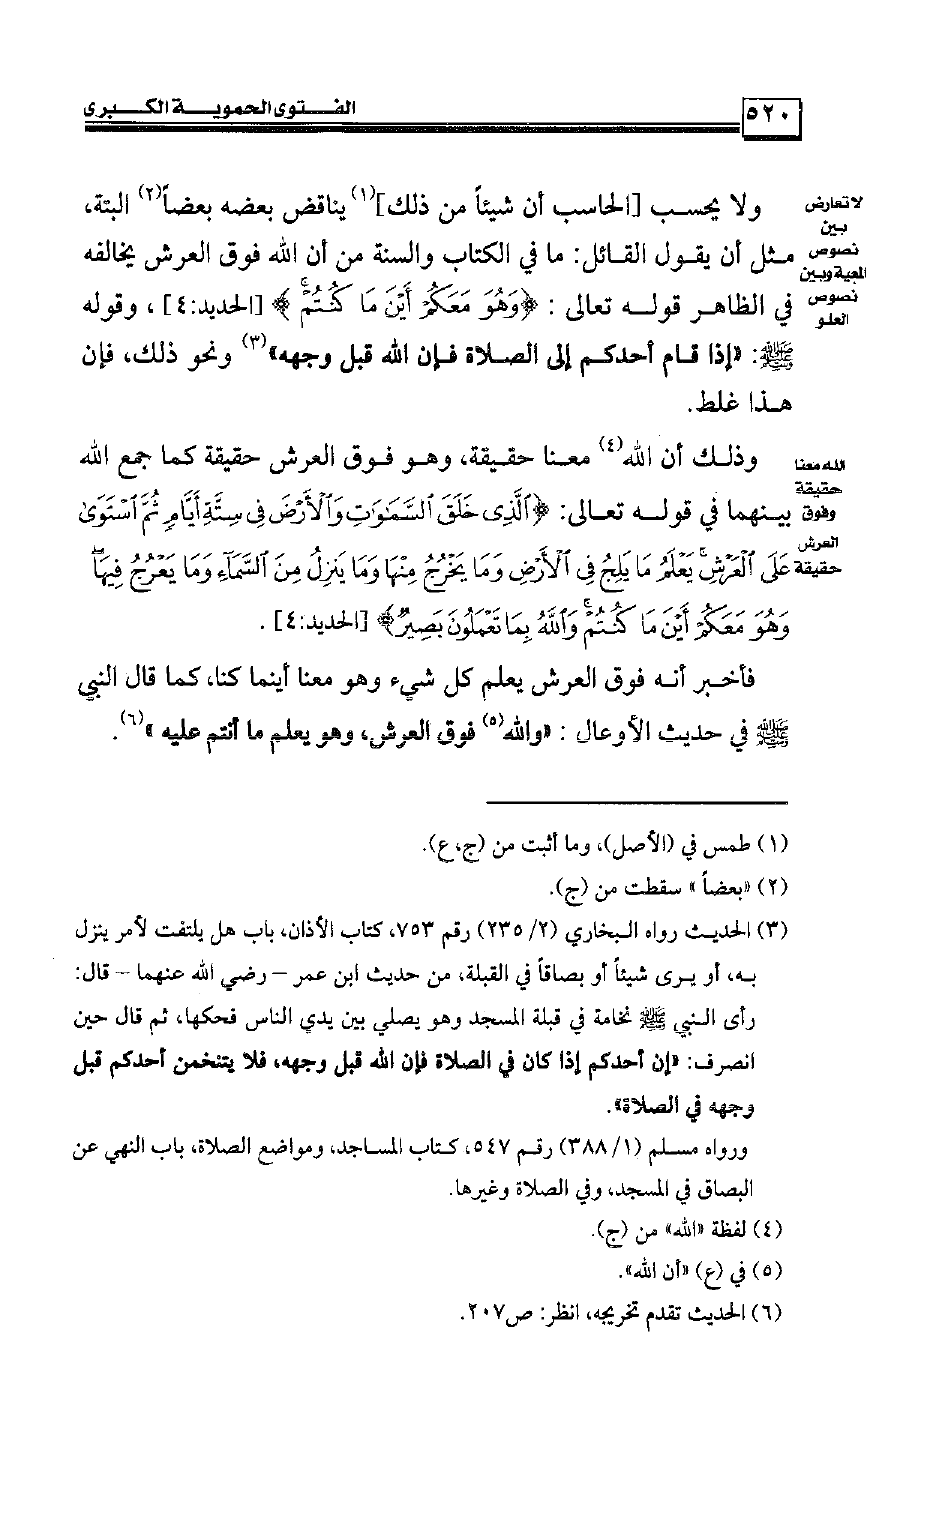 ٥٢٠
الفتوى الحموية الكبرى
لا تعارض
بين
نصوص
المعية وبين
نصوص
العلو
ولا يحسب [الحاسب أن شيئاً من ذلك](١) يناقض بعضه بعضاً(٢) البتة،
مثل أن يقول القائل: ما في الكتاب والسنة من أن الله فوق العرش يخالفه
في الظاهر قوله تعالى : ﴿وَهُوَ مَعَكُمْ أَيْنَ مَا كُنتُمْ ۚ﴾ [الحديد:٤] ، وقوله
ﷺ: «إذا قام أحدكم إلى الصلاة فإن الله قبل وجهه»(٣) ونحو ذلك، فإن
هذا غلط.
الله معنا
حقيقة
وفوق
العرش
حقيقة
وذلك أن الله(٤) معنا حقيقة، وهو فوق العرش حقيقة كما جمع الله
بينهما في قوله تعالى: ﴿ٱلَّذِى خَلَقَ ٱلسَّمَٰوَٰتِ وَٱلْأَرْضَ فِى سِتَّةِ أَيَّامٍ ثُمَّ ٱسْتَوَىٰ
عَلَى ٱلْعَرْشِ ۚ يَعْلَمُ مَا يَلِجُ فِى ٱلْأَرْضِ وَمَا يَخْرُجُ مِنْهَا وَمَا يَنزِلُ مِنَ ٱلسَّمَآءِ وَمَا يَعْرُجُ فِيهَا ۖ
وَهُوَ مَعَكُمْ أَيْنَ مَا كُنتُمْ ۚ وَٱللَّهُ بِمَا تَعْمَلُونَ بَصِيرٌ﴾ [الحديد:٤] .
فأخبر أنه فوق العرش يعلم كل شيء وهو معنا أينما كنا، كما قال النبي
ﷺ في حديث الأوعال : «والله(٥) فوق العرش، وهو يعلم ما أنتم عليه »(٦).
(١) طمس في (الأصل)، وما أثبت من (ج،ع).
(٢) «بعضاً » سقطت من (ج).
(٣) الحديث رواه البخاري (٢/ ٢٣٥) رقم ٧٥٣، كتاب الأذان، باب هل يلتفت لأمر ينزل
به، أو يرى شيئاً أو بصاقاً في القبلة، من حديث ابن عمر – رضي الله عنهما – قال:
رأى النبي ﷺ نخامة في قبلة المسجد وهو يصلي بين يدي الناس فحكها، ثم قال حين
انصرف: «إن أحدكم إذا كان في الصلاة فإن الله قبل وجهه، فلا يتنخمن أحدكم قبل
وجهه في الصلاة».
ورواه مسلم (١/ ٣٨٨) رقم ٥٤٧، كتاب المساجد، ومواضع الصلاة، باب النهي عن
البصاق في المسجد، وفي الصلاة وغيرها.
(٤) لفظة «الله» من (ج).
(٥) في (ع) «أن الله».
(٦) الحديث تقدم تخريجه، انظر: ص٢٠٧.